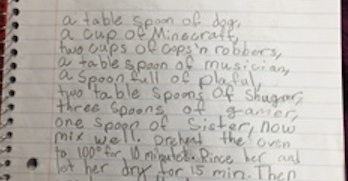 a table spoon of dog,
a cup of Minecraft,
two cups of cops'n robbers,
a table spoon of musician,
a spoon full of plaful,
two table spoons of shugar,
three spoons of gamer,
one spoon of Sister, now
mix well. Preheat the oven
to 100° for 10 minutes. Rince her and
let her dry for 15 min. Then